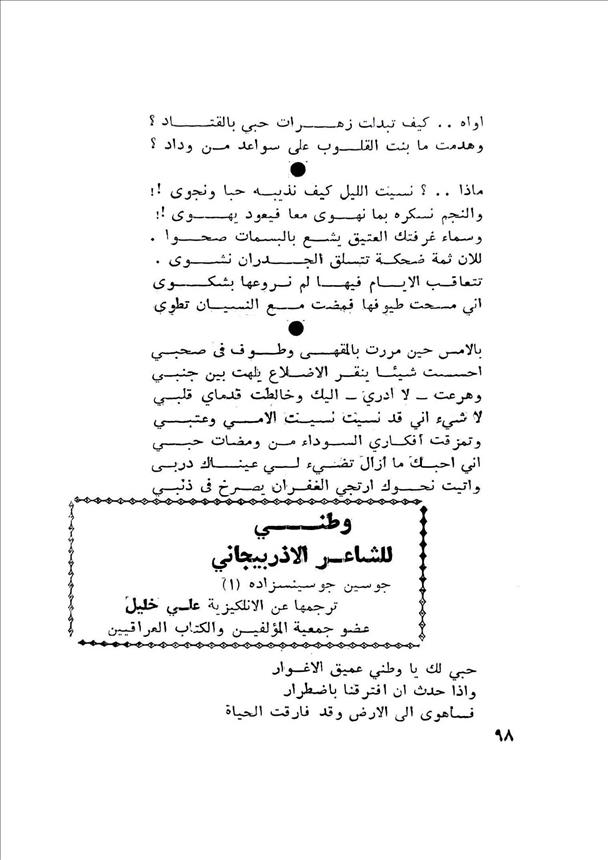 اواه . . كيف تبدلت زهرات حبي بالقتاد ؟
وهدمت ما بنت القلوب على سواعد من وداد ؟
●
ماذا . . ؟ نسيت الليل كيف نذيبه حبا ونجوى !!
والنجم نسكره بما نهوى معا فيعود يهوى !!
وسماء غرفتك العتيق يشع بالبسمات صحوا .
للان ثمة ضحكة تتسلق الجدران نشوى .
تتعاقب الايام فيها لم نروعها بشكوى
اني مسحت طيوفها فمضت مع النسيان تطوي
●
بالامس حين مررت بالمقهى وطوف فى صحبي
احسست شيئا ينقر الاضلاع يلهت بين جنبي
وهرعت ـ لا أدري ـ اليك وخالطت قدماي قلبي
لا شيء اني قد نسيت نسيت الامي وعتبي
وتمزقت أفكاري السوداء من ومضات حبي
اني احبك ما أزال تضيء لي عيناك دربى
واتيت نحوك ارتجي الغفران يصرخ فى ذنبي
وطني
للشاعر الاذربيجاني
جوسين جوسينسزاده (١)
ترجمها عن الانلكيزية علي خليل
عضو جمعية المؤلفين والكتاب العراقيين
حبي لك يا وطني عميق الاغوار
واذا حدث ان افترقنا باضطرار
فساهوى الى الارض وقد فارقت الحياة
٩٨